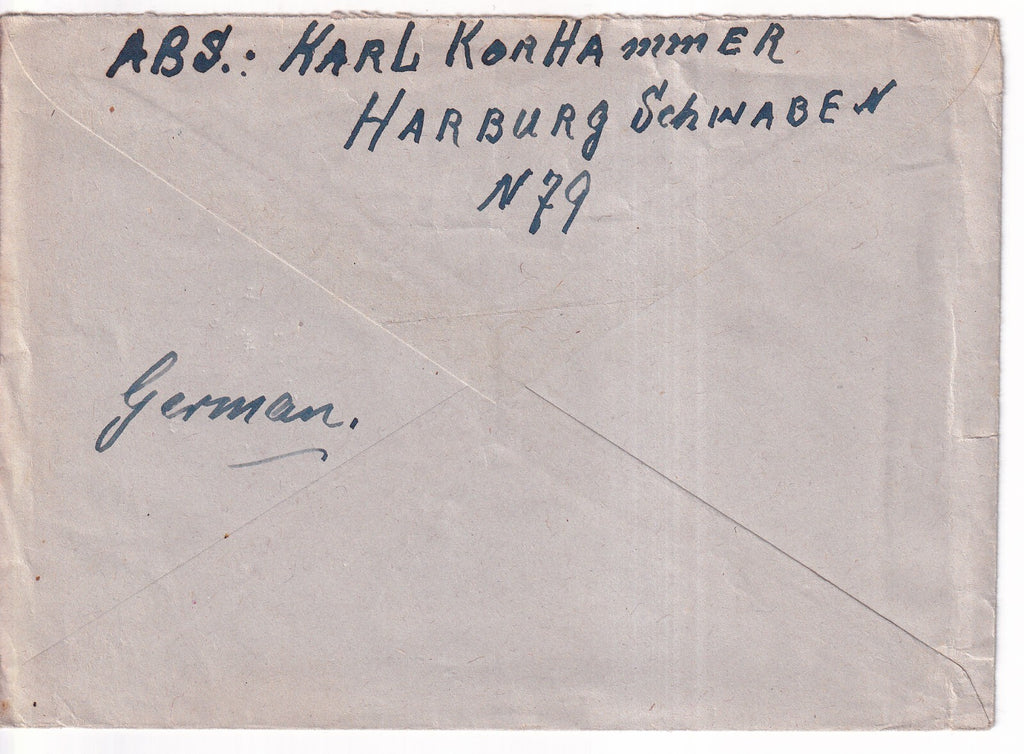 ABS.: KARL KORHAmmER
HARBURG SchWABEN
N 79
German.